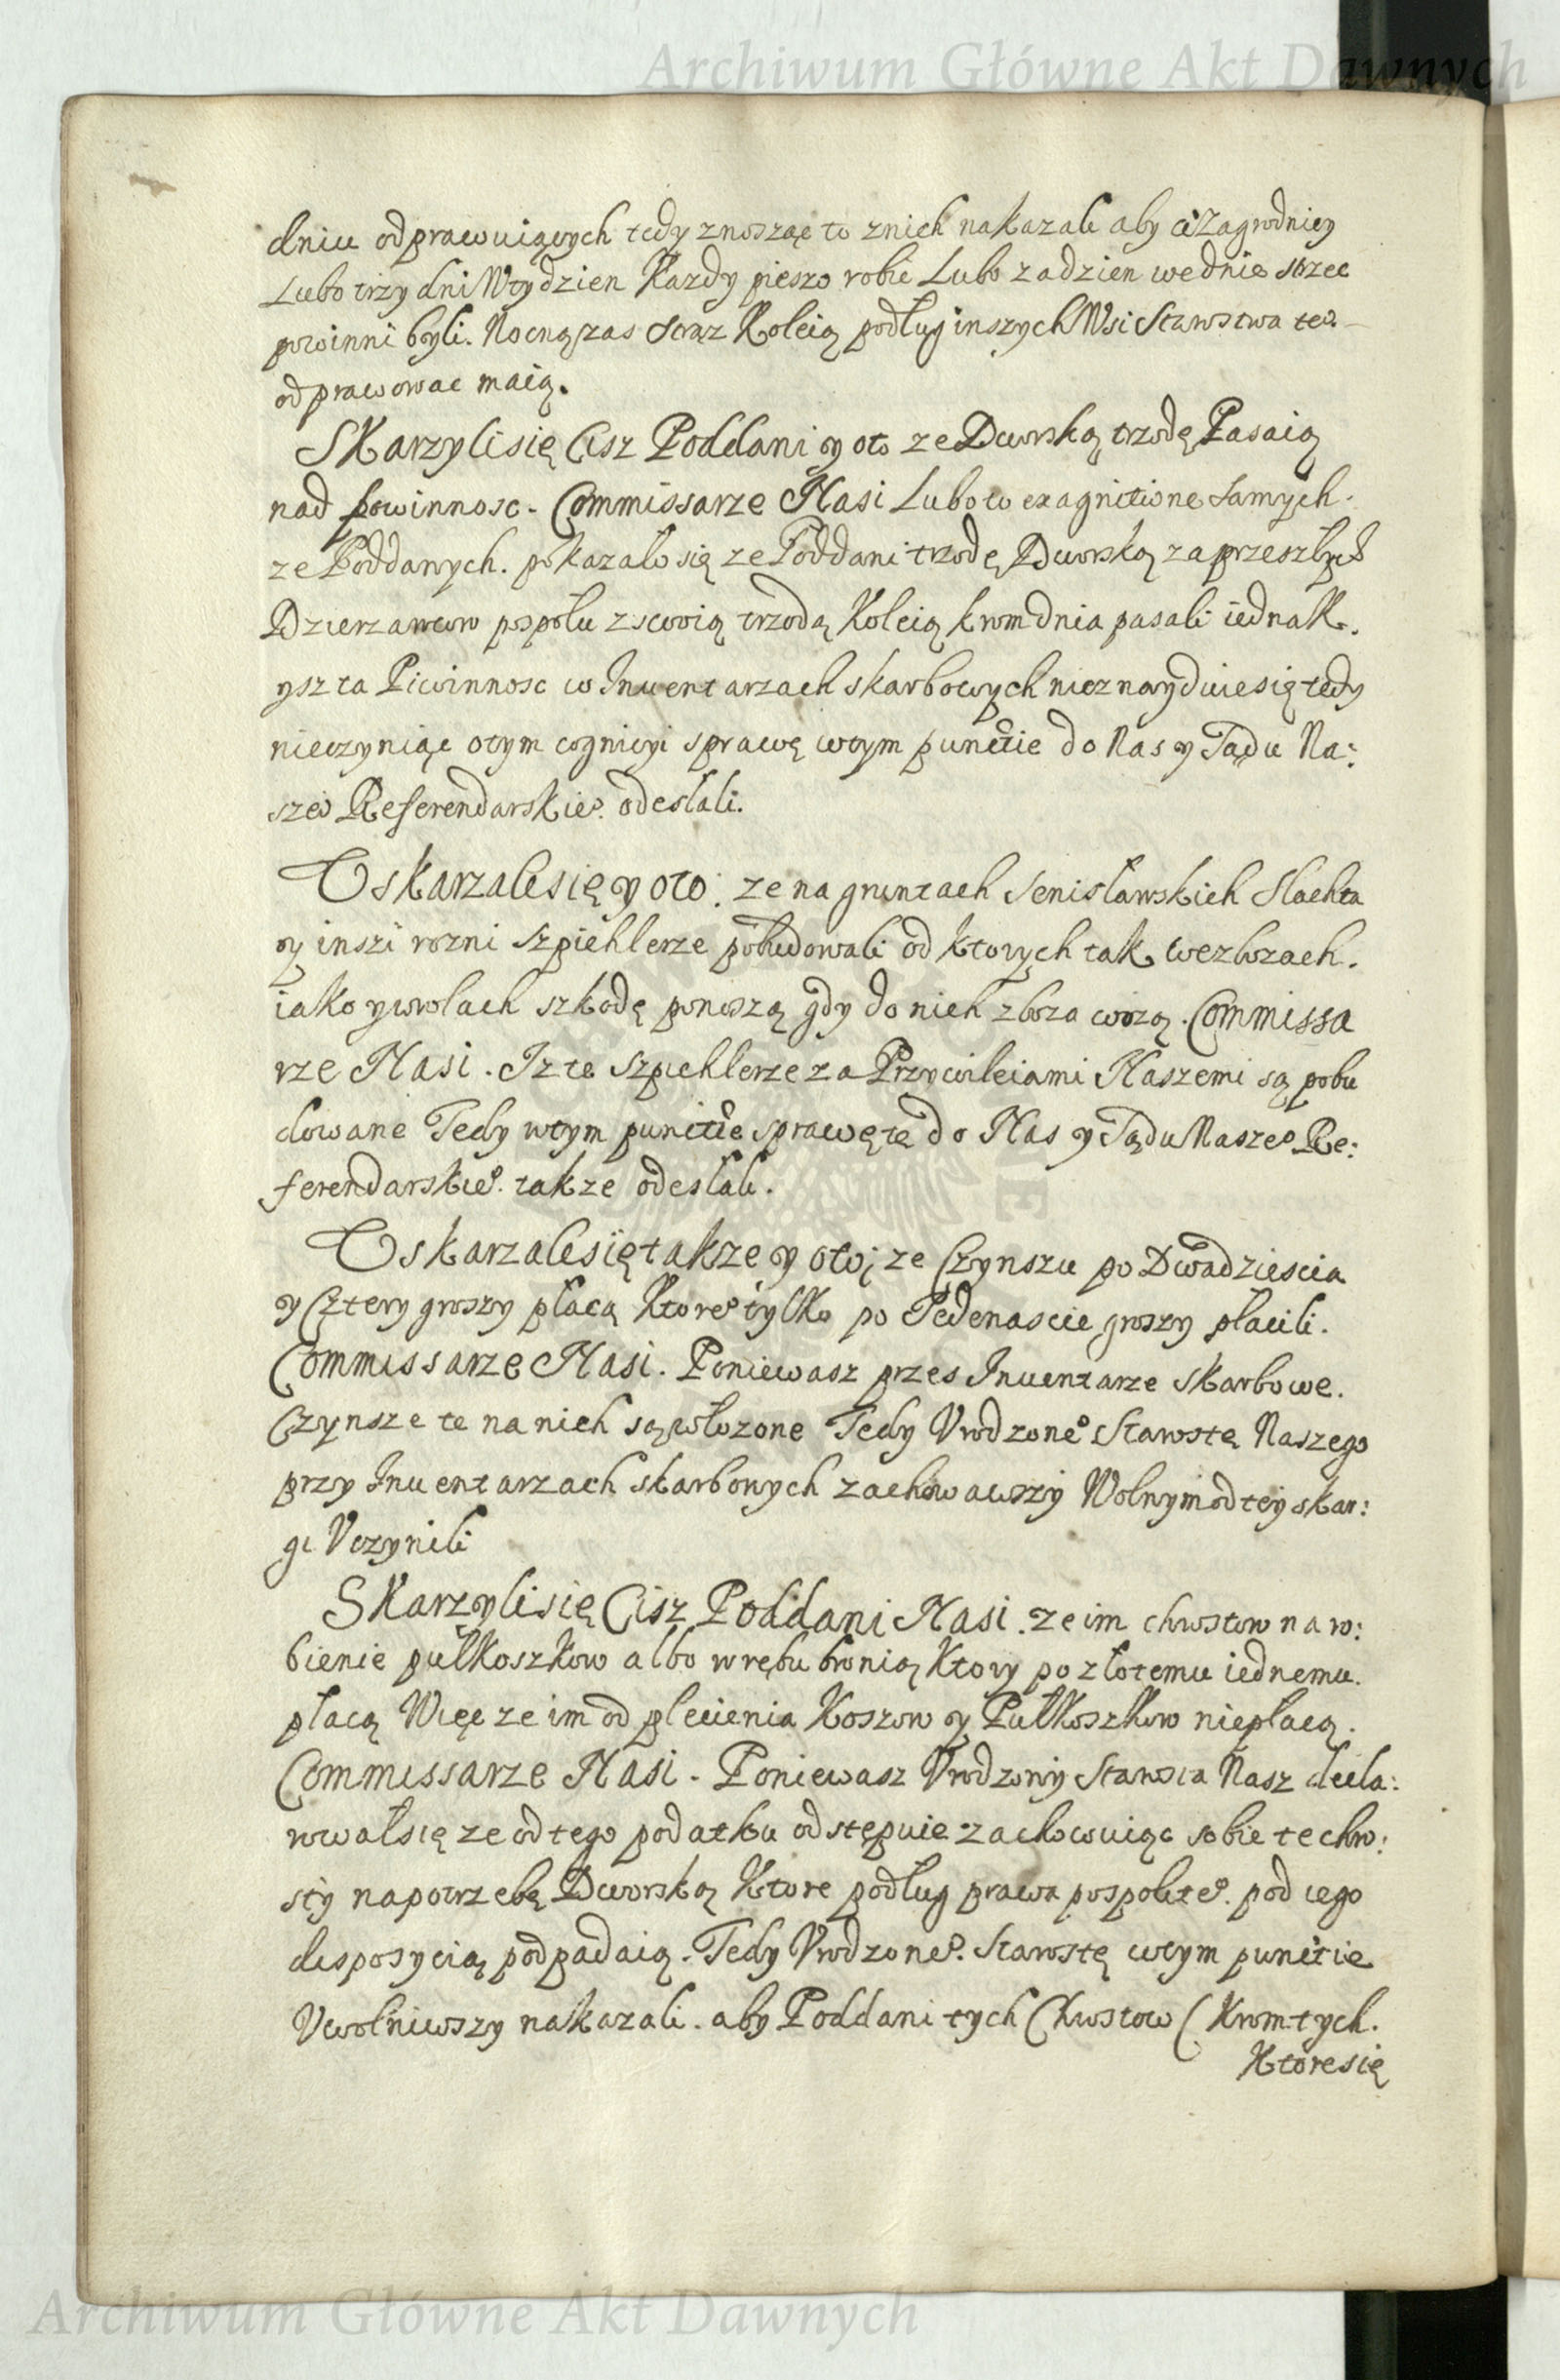 Archiwum Główne Akt Dawnych
dniu odprawuiących tedy znosząc to znich nakazali aby ci Zagrodnicy
Lubo trzy dni Wtydzien Kazdy pieszo robic Lubo zadzien wednie strzec
powinni byli. Nocną zas straz Koleią podług inszych Wsi Starostwa te°
odprawowac maią.
Skarzyli się Cisz Poddani y oto ze Dworską trzodę Pasaią
nad powinnosc. Commissarze Nasi Lubo w exagnitione samych
ze Poddanych. pokazało się ze Poddani trzodę Dworską za przeszłych
Dzierzawcow pospołu z swoią trzodą Koleią krom dnia pasali iednak.
ysz ta Powinnosc w Inwentarzach skarbowych nieznayduie się tedy
nieczyniąc otym cognicyi sprawę wtym punctie do Nas y Sądu Na:
sze° Referendarskie°. odesłali.
Uskarzali się y oto: ze na gruntach Senisławskich Slachta
y inszi rozni Szpichlerze pobudowali od ktorych tak wezbozach.
iako ywrolach szkodę ponoszą gdy do nich zboza wozą. Commissa
rze Nasi. Iz te szpichlerze za Przywileiami Naszemi są pobu
dowane Tedy wtym punctie sprawę tę do Nas y Sądu Nasze° Re:
ferendarskie°. takze odesłali.
Uskarzali się takze y oto; ze Czynszu po Dwadziescia
y Cztery groszy płacą Ktore° tylko po Jedenascie groszy płacili.
Commissarze Nasi. Poniewasz przes Inuentarze skarbowe.
Czynsze te na nich są włozone Tedy Vrodzone° Starostę Naszego
przy Inuentarzach skarbonych zachowawszy Wolnym od tey skar:
gi Vczynili
Skarzyli się Cisz Poddani Nasi. ze im chrostow na ro:
bienie pułkoszkow albo wrębu bronią Ktory po złotemu iednemu.
płacą Więc ze im od plecienia Koszow y Pułkoszkow niepłacą.
Commissarze Nasi. Poniewasz Vrodzony Starosta Nasz decla:
rował się ze od tego podatku odstępuie zachowuiąc sobie te chro:
sty na potrzebę Dworską Ktore podług prawa pospolite°. pod iego
disposycią podpadaią. Tedy Vrodzone°. Starostę wtym punctie
Vwolniwszy nakazali. aby Poddani tych Chrostow ( Krom tych.
Ktore się
Archiwum Główne Akt Dawnych